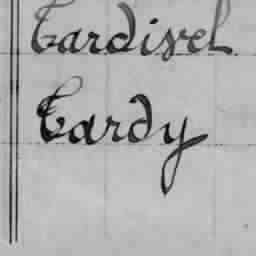 Tardivel
Tardy